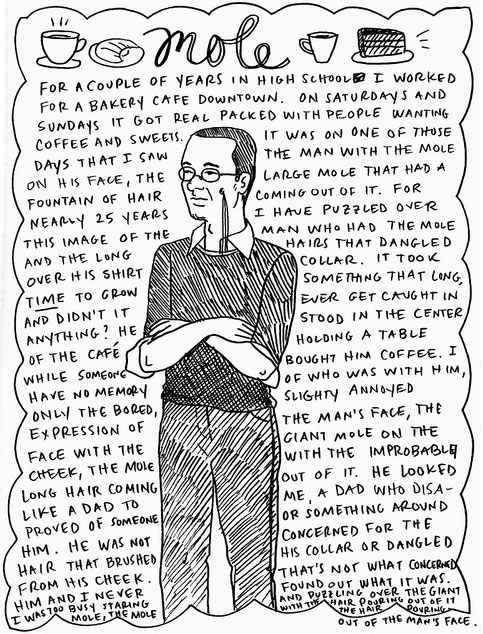 mole
FOR A COUPLE OF YEARS IN HIGH SCHOOL I WORKED
FOR A BAKERY CAFE DOWNTOWN. ON SATURDAYS AND
SUNDAYS IT GOT REAL PACKED WITH PEOPLE WANTING
COFFEE AND SWEETS. IT WAS ON ONE OF THOSE
DAYS THAT I SAW THE MAN WITH THE MOLE
ON HIS FACE, THE LARGE MOLE THAT HAD A
FOUNTAIN OF HAIR COMING OUT OF IT. FOR
NEARLY 25 YEARS I HAVE PUZZLED OVER
THIS IMAGE OF THE MAN WHO HAD THE MOLE
AND THE LONG HAIRS THAT DANGLED
OVER HIS SHIRT COLLAR. IT TOOK
TIME TO GROW SOMETHING THAT LONG,
AND DIDN'T IT EVER GET CAUGHT IN
ANYTHING? HE STOOD IN THE CENTER
OF THE CAFÉ HOLDING A TABLE
WHILE SOMEONE BOUGHT HIM COFFEE. I
HAVE NO MEMORY OF WHO WAS WITH HIM,
ONLY THE BORED, SLIGHTY ANNOYED
EXPRESSION OF THE MAN'S FACE, THE
FACE WITH THE GIANT MOLE ON THE
CHEEK, THE MOLE WITH THE IMPROBABLY
LONG HAIR COMING OUT OF IT. HE LOOKED
LIKE A DAD TO ME, A DAD WHO DISA-
PROVED OF SOMEONE OR SOMETHING AROUND
HIM. HE WAS NOT CONCERNED FOR THE
HAIR THAT BRUSHED HIS COLLAR OR DANGLED
FROM HIS CHEEK. THAT'S NOT WHAT CONCERNED
HIM AND I NEVER FOUND OUT WHAT IT WAS.
I WAS TOO BUSY STARING AND PUZZLING OVER THE GIANT
MOLE, THE MOLE WITH THE HAIR POURING OUT OF IT
THE HAIR POURING
OUT OF THE MAN'S FACE.